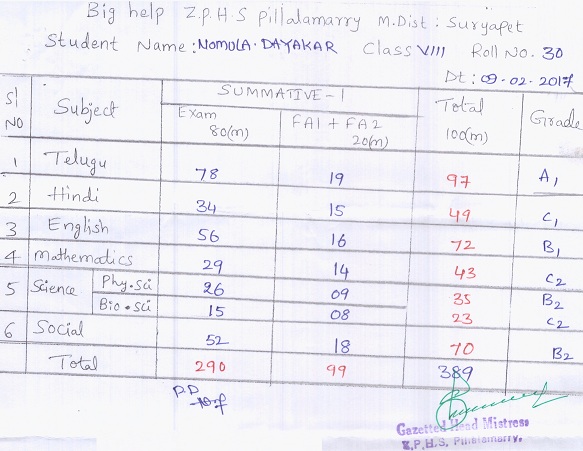 Big help Z.P.H.S Pillalamarry M.Dist : Suryapet
Student Name : NOMULA. DAYAKAR Class VIII Roll No. 30
Dt : 09-02-2017
Sl NO Subject SUMMATIVE - I Total 100(m) Grade
Exam 80(m) FA1 + FA2 20(m)
1 Telugu 78 19 97 A1
2 Hindi 34 15 49 C1
3 English 56 16 72 B1
4 mathematics 29 14 43 C2
5 Science Phy.sci 26 09 35 B2
Bio.sci 15 08 23 C2
6 Social 52 18 70 B2
Total 290 99 389
Gazetted Head Mistress
Z.P.H.S, Pillalamarry.